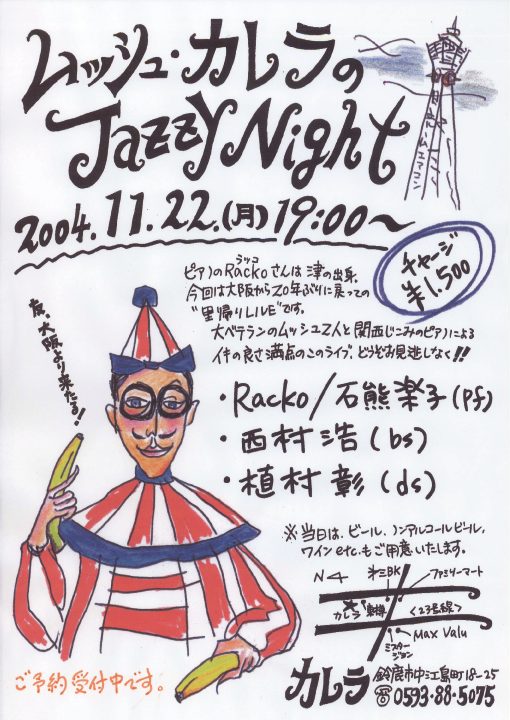 ムッシュ・カレラの
Jazzy Night
2004.11.22.(月)19:00〜
チャージ
¥1,500
ラッコ
ピアノのRackoさんは津の出身。
今回は大阪から20年ぶりに戻っての
"里帰りLIVE"です。
大ベテランのムッシュ2人と関西じこみのピアノによる
イキの良さ満点のこのライブ、どうぞお見逃しなく!!
大阪より来たる!
・Racko/石熊楽子(pf)
・西村 浩(bs)
・植村 彰(ds)
※当日は、ビール、ノンアルコールビール、
ワインetc.もご用意いたします。
N
三BK
ファミリーマート
カレラ
<23号線>
Max Valu
ミスター
ジョン
カレラ
鈴鹿市中江島町18-25
☎0593-88-5075
ご予約受付中です。